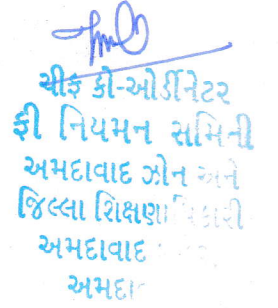 ચીફ કો-ઓર્ડીનેટર
ફી નિયમન સમિતી
અમદાવાદ ઝોન અને
જિલ્લા શિક્ષણા
અમદાવાદ
અમદા